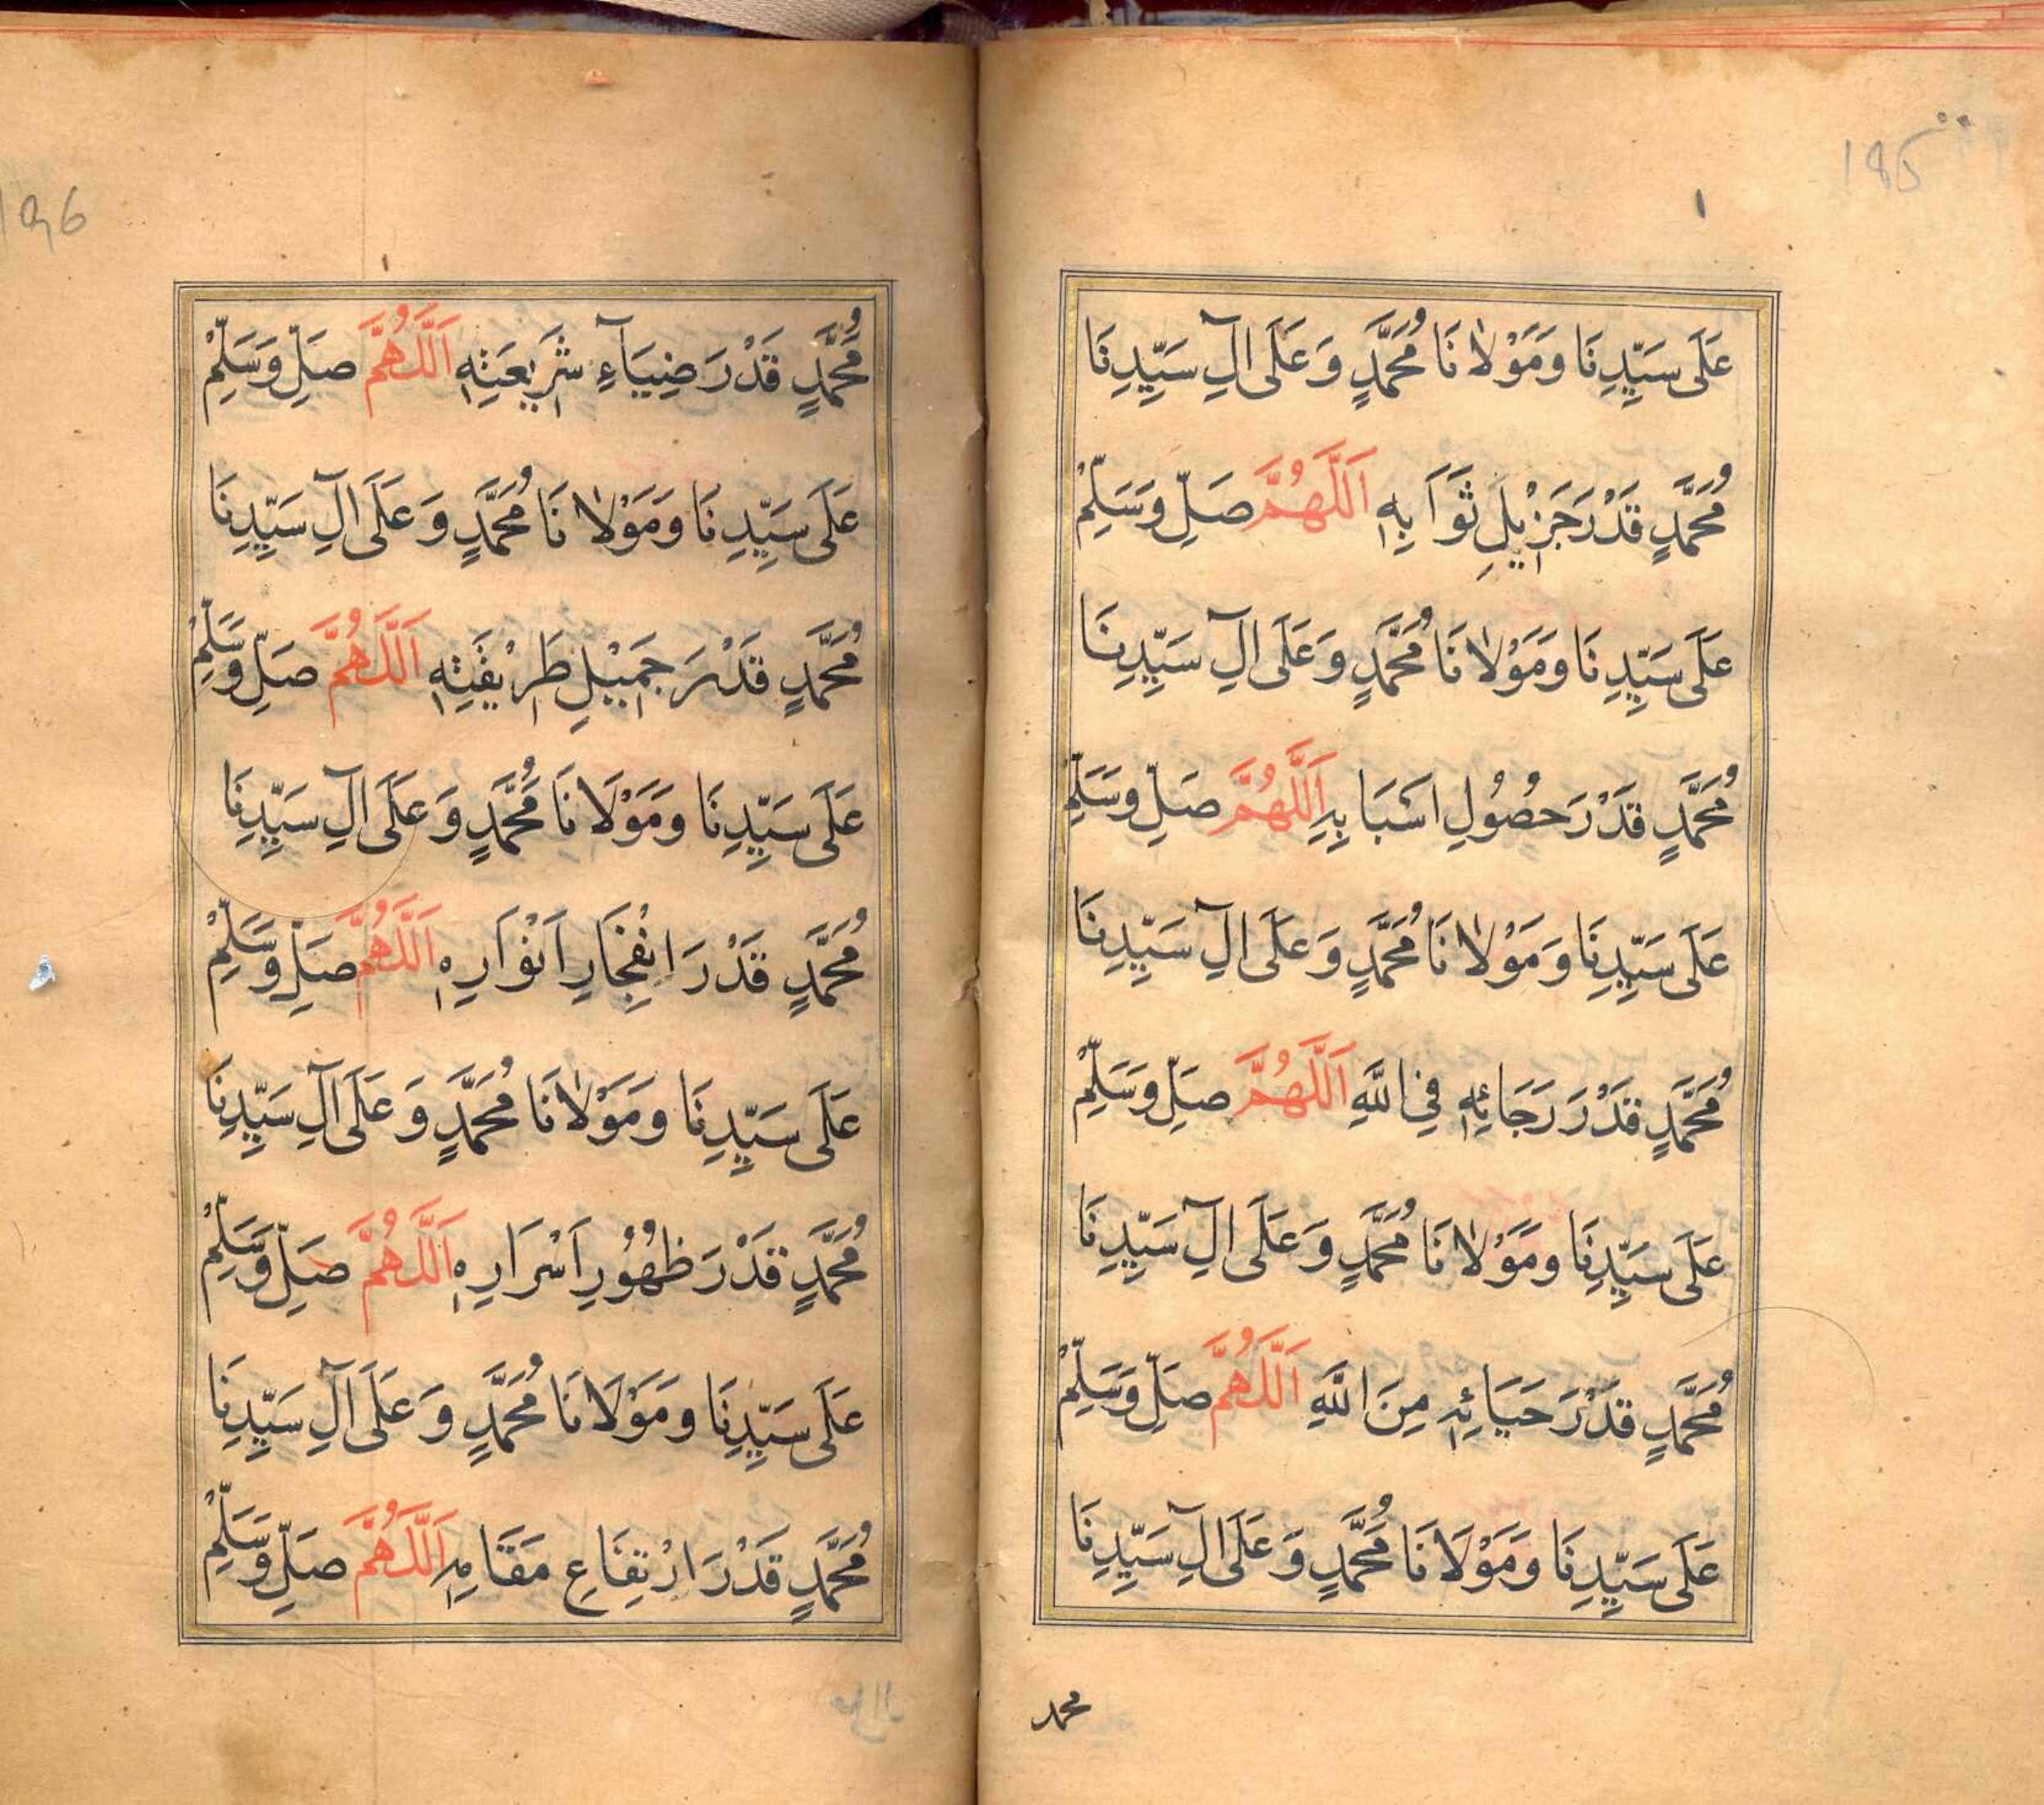 195
١
عَلَى سَيِّدِنَا وَمَوْلَانَا مُحَمَّدٍ وَعَلَى اٰلِ سَيِّدِنَا
مُحَمَّدٍ قَدْرَ جَزِيْلِ ثَوَابِهٖ اَللّٰهُمَّ صَلِّ وَسَلِّمْ
عَلَى سَيِّدِنَا وَمَوْلَانَا مُحَمَّدٍ وَعَلَى اٰلِ سَيِّدِنَا
مُحَمَّدٍ قَدْرَ حُصُوْلِ اَسْبَابِهٖ اَللّٰهُمَّ صَلِّ وَسَلِّمْ
عَلَى سَيِّدِنَا وَمَوْلَانَا مُحَمَّدٍ وَعَلَى اٰلِ سَيِّدِنَا
مُحَمَّدٍ قَدْرَ رَجَائِهٖ فِي اللّٰهِ اَللّٰهُمَّ صَلِّ وَسَلِّمْ
عَلَى سَيِّدِنَا وَمَوْلَانَا مُحَمَّدٍ وَعَلَى اٰلِ سَيِّدِنَا
مُحَمَّدٍ قَدْرَ حَيَائِهٖ مِنَ اللّٰهِ اَللّٰهُمَّ صَلِّ وَسَلِّمْ
عَلَى سَيِّدِنَا وَمَوْلَانَا مُحَمَّدٍ وَعَلَى اٰلِ سَيِّدِنَا
محمد
196
مُحَمَّدٍ قَدْرَ ضِيَآءِ شَرِيْعَتِهٖ اَللّٰهُمَّ صَلِّ وَسَلِّمْ
عَلَى سَيِّدِنَا وَمَوْلَانَا مُحَمَّدٍ وَعَلَى اٰلِ سَيِّدِنَا
مُحَمَّدٍ قَدْرَ جَمِيْلِ طَرِيْقَتِهٖ اَللّٰهُمَّ صَلِّ وَسَلِّمْ
عَلَى سَيِّدِنَا وَمَوْلَانَا مُحَمَّدٍ وَعَلَى اٰلِ سَيِّدِنَا
مُحَمَّدٍ قَدْرَ انْفِجَارِ اَنْوَارِهٖ اَللّٰهُمَّ صَلِّ وَسَلِّمْ
عَلَى سَيِّدِنَا وَمَوْلَانَا مُحَمَّدٍ وَعَلَى اٰلِ سَيِّدِنَا
مُحَمَّدٍ قَدْرَ ظُهُوْرِ اَسْرَارِهٖ اَللّٰهُمَّ صَلِّ وَسَلِّمْ
عَلَى سَيِّدِنَا وَمَوْلَانَا مُحَمَّدٍ وَعَلَى اٰلِ سَيِّدِنَا
مُحَمَّدٍ قَدْرَ ارْتِفَاعِ مَقَامِهٖ اَللّٰهُمَّ صَلِّ وَسَلِّمْ